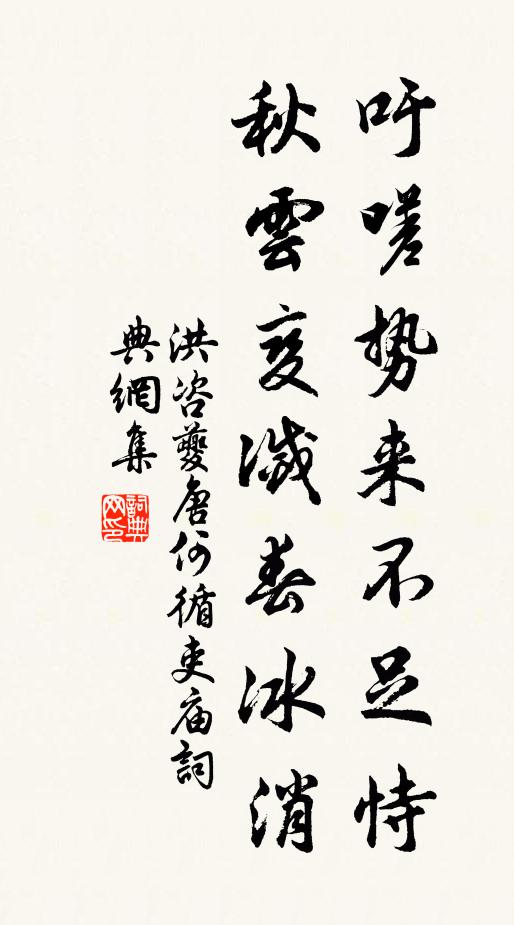 吁嗟势来不足恃
秋雲变滅春冰消
洪咨夔唐何循吏庙詞
典網集
詞典网印